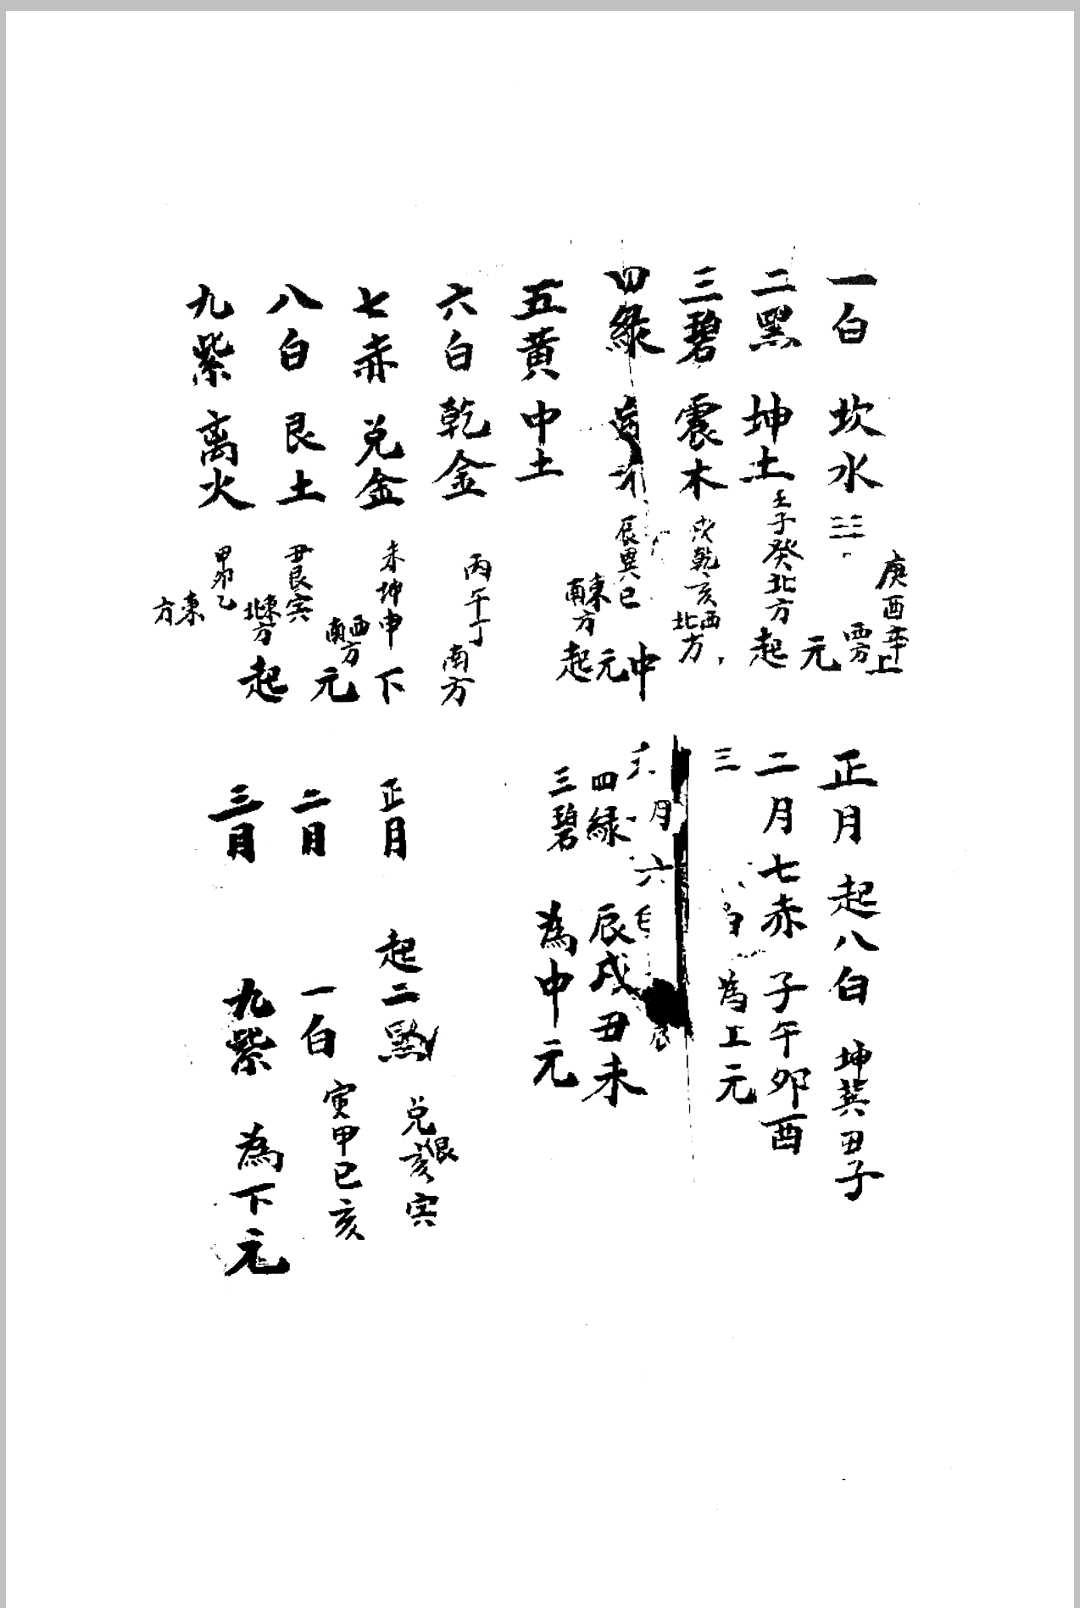 一白 坎水
庚酉辛 西方 上
二黑 坤土 壬子癸北方 元
三碧 震木 戌乾亥西北方 起
四綠 木 辰巽巳東南方 中
五黃 中土 元
六白 乾金 丙午丁 南方 起
七赤 兌金 未坤申西南方 下
八白 艮土 丑艮寅東北方 元
九紫 离火 甲卯乙東方 起
正月 起八白 坤巽丑子
二月 七赤 子午卯酉
三 白 為上元
月 六
四綠 辰戌丑未
三碧 為中元
正月 起二黑 兌艮亥寅
二月 一白 寅甲巳亥
三月 九紫 為下元